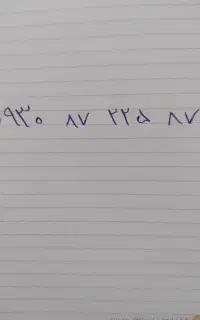 ۹۳۰ ۸۷ ۲۲۵ ۸۷